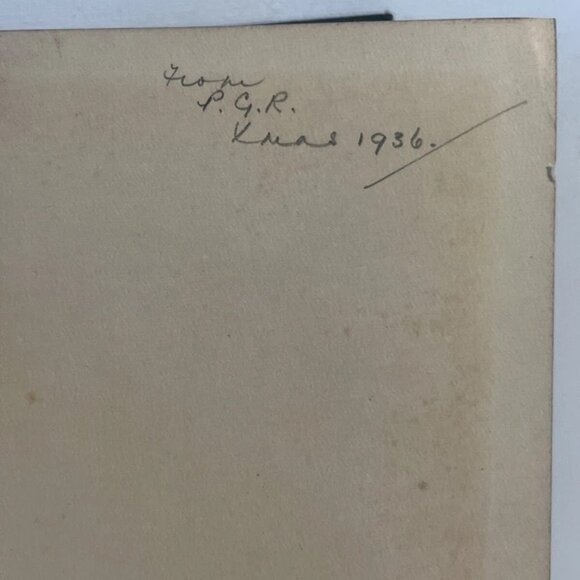 From
P. G. R.
Xmas 1936.